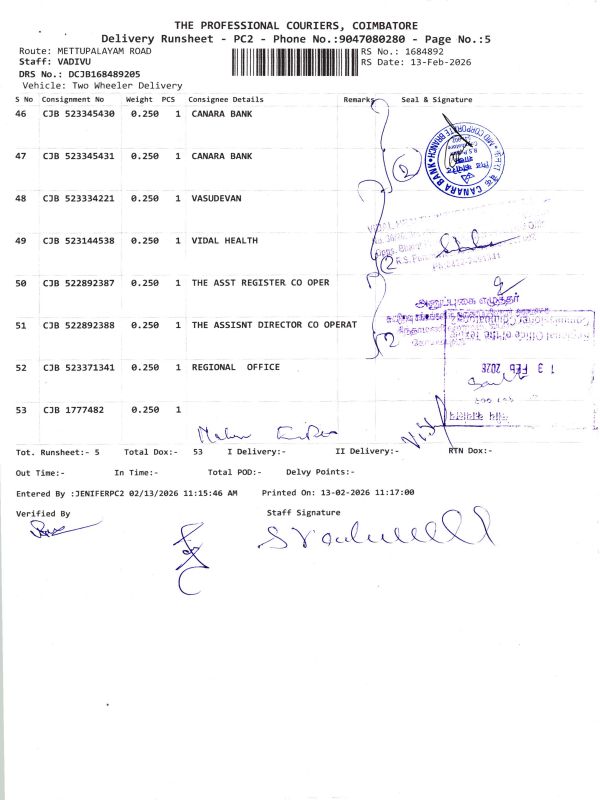 THE PROFESSIONAL COURIERS, COIMBATORE
Delivery Runsheet - PC2 - Phone No.:9047080280 - Page No.:5
Route: METTUPALAYAM ROAD RS No.: 1684892
Staff: VADIVU RS Date: 13-Feb-2026
DRS No.: DCJB168489205
Vehicle: Two Wheeler Delivery
S No Consignment No Weight PCS Consignee Details Remarks Seal & Signature
46 CJB 523345430 0.250 1 CANARA BANK
47 CJB 523345431 0.250 1 CANARA BANK
CANARA BANK MID CORPORATE BRANCH
2
48 CJB 523334221 0.250 1 VASUDEVAN
49 CJB 523144538 0.250 1 VIDAL HEALTH
2
50 CJB 522892387 0.250 1 THE ASST REGISTER CO OPER
51 CJB 522892388 0.250 1 THE ASSISNT DIRECTOR CO OPERAT
2
52 CJB 523371341 0.250 1 REGIONAL OFFICE
13 FEB 2026
53 CJB 1777482 0.250 1
Tot. Runsheet:- 5 Total Dox:- 53 I Delivery:- II Delivery:- RTN Dox:-
Out Time:- In Time:- Total POD:- Delvy Points:-
Entered By :JENIFERPC2 02/13/2026 11:15:46 AM Printed On: 13-02-2026 11:17:00
Verified By Staff Signature